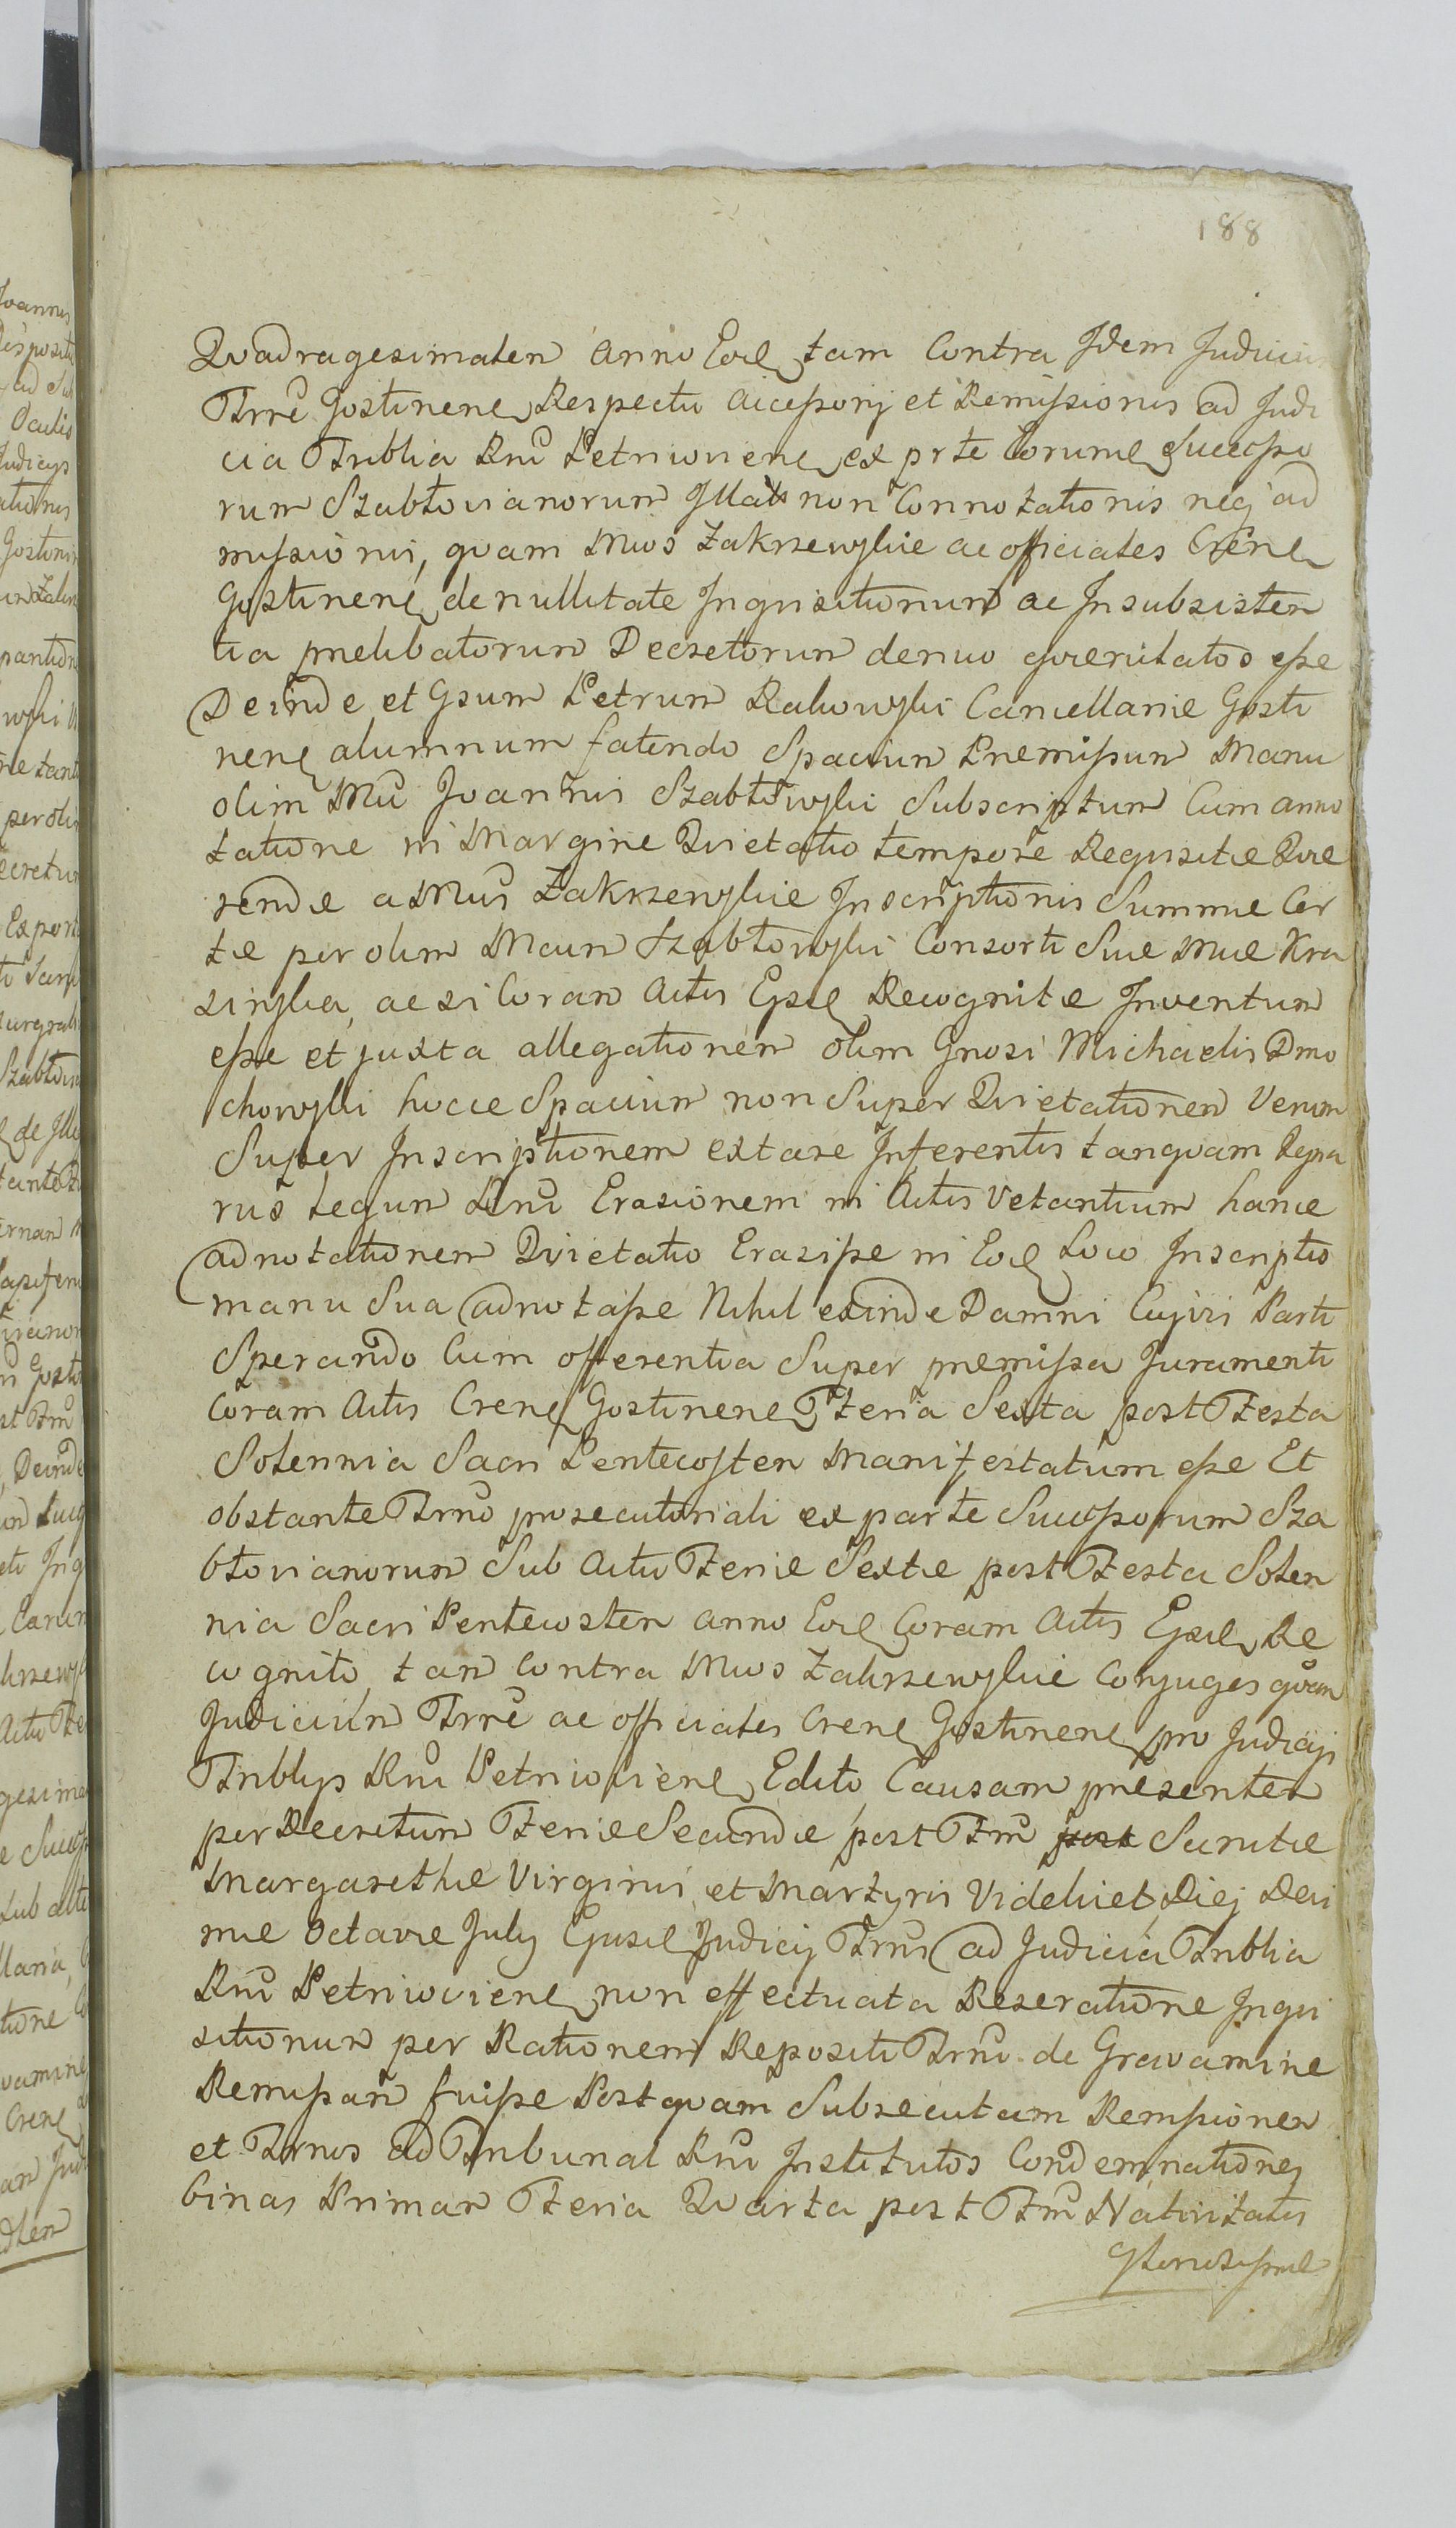 188
Quadragesimalen Anno Eod tam Contra Idem Judiciu
Trre Gostinen Respectu Accessorij et Remissionis ad Judi
cia Triblia Rni Petricovien ex prte Eorund Successo
rum Szabłovianorum Illati non Connotationis neq ad
missionis, quam Mcos Zakrzewskie ac officiales Cren
Gostinen de nullitate Inquisitionum ac Insubsisten
tia prelibatorum Decretorum denuo querulatos esse
Deinde et Gsum Petrum Rakowski Cancellarie Gosti
nen alumnum fatendo Spacium Premissum Manu
olim Mci Joannis Szabłowski Subscriptum Cum anno
tatione in Margine Quietatio tempore Requisite Que
rende a Mcis Zakrzewskie Inscriptionis Summe Cer
te per olim Mcum Szabłowski Consorti Sue Mce Kra
sinska, ac si Coram Actis Eisd Recognite Inventum
esse et juxta allegationem olim Gnosi Michaelis Dmo
chowski hocce Spacium non Super Quietationem Verum
Super Inscriptionem extare Inferentis tanquam
legum Rni Erasionem in Actis Vetantium hance
adnotationem Quietatio Erasisse in Eod Loco Inscriptio
manu Sua adnotasse Nihil exinde Damni Cuivis Parti
Sperando Cum offerentia Super premissa Juramenti
Coram Actis Cren Gostinen Feria Sexta post Festa
Solennia Sacri Pentecosten Manifestatum esse Et
obstante Trmo prosecutoriali ex parte Successorum Sza
błovianorum Sub Actu Ferie Sexte post Festa Solen
nia Sacri Pentecosten Anno Eod Coram Actis Eisd Re
cognito, tam Contra Mcos Zakrzewskie Conjuges quam
Judicium Trre ac officiales Cren Gostinen pro Judicijs
Triblijs Rni Petricovien Edito Causam presentem
per Decretum Ferie Secunde post Ftm post Sancte
Margarethe Virginis et Martyris Videlicet Diej Deci
me Octave July Ejusd Judicij Trris ad Judicia Triblia
Rni Petricovien non effectuata Reseratione Inqui
sitionum per Rationem Repositi Trmi de Gravamine
Remissam fuisse Post quam Subsecutam Remissionem
et Trmos ad Tribunal Rni Institutos Condemnationes
binas Primam Feria Quarta post Ftm Nativitatis